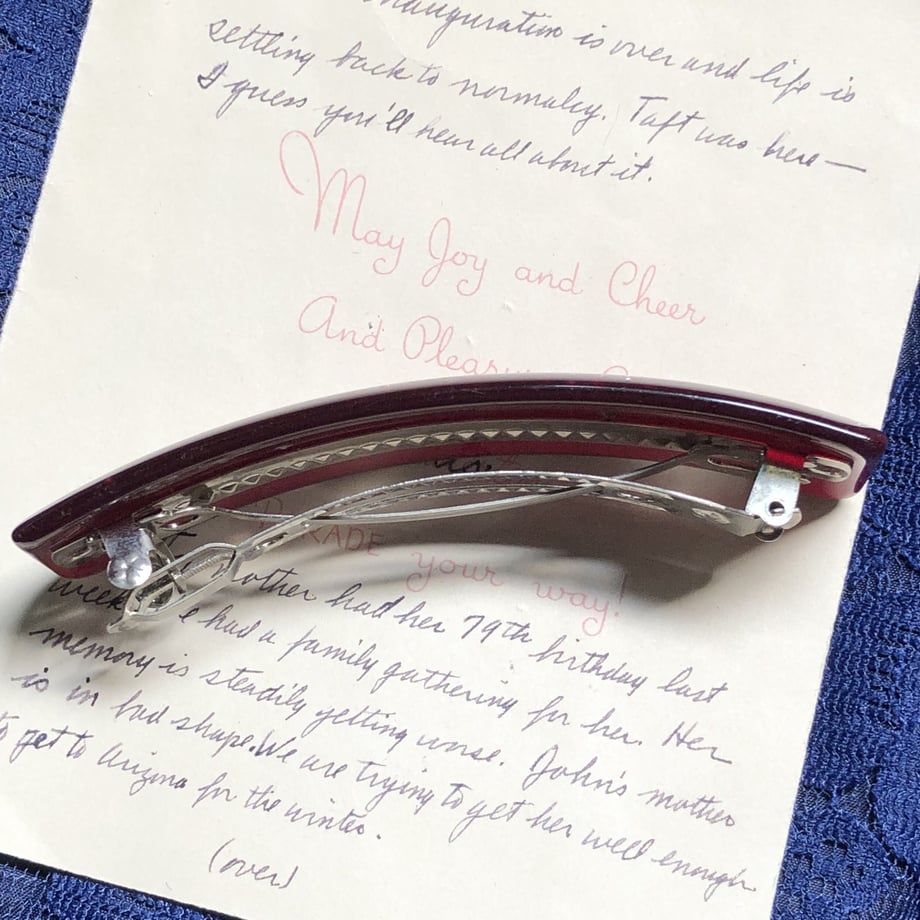 inauguration is over and life is
settling back to normalcy. Taft was here—
I guess you'll hear all about it.
May Joy and Cheer
And
RADE your way!
mother had her 79th birthday last
week. had a family gathering for her. Her
memory is steadily getting worse. John's mother
is in bad shape. We are trying to get her well enough
to get to Arizona for the winter.
(over)